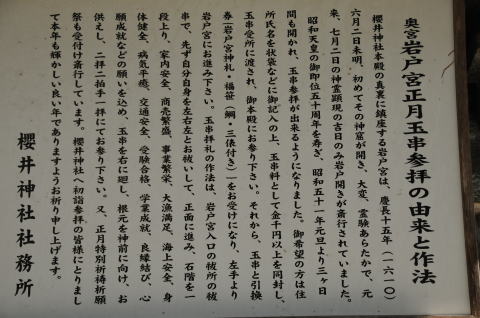 奥宮岩戸宮正月玉串参拝の由来と作法
櫻井神社本殿の真裏に鎮座する岩戸宮は、慶長十五年(一六一〇)
六月二日未明、初めてその神窟が開き、大変、霊験あらたかで、元
来、七月二日の神霊顕現の吉日のみ岩戸開きが斎行されていました。
昭和天皇の御即位五十周年を寿ぎ、昭和五十一年元旦より三ヶ日
間も開かれ、玉串参拝が出来るようになりました。御希望の方は住
所氏名を状袋などに御記入の上、玉串料として金千円以上を同封し、
玉串受所に渡され、御本殿にお参り下さい。それから、玉串と引換
券(岩戸宮神札・福笹(鯛・三俵付き))をお受けになり、左手より
岩戸宮にお進み下さい。玉串拝礼の作法は、岩戸宮入口の祓所の祓
串で、先ず自分自身を左右左とお祓いして、正面に進み、石階を一
段上り、家内安全、商売繁盛、事業繁栄、大漁満足、海上安全、身
体健全、病気平癒、交通安全、受験合格、学業成就、良縁結び、心
願成就などの願いを込め、玉串を右に廻し、根元を神前に向け、お
供えし、二拝二拍手一拝にてお参り下さい。又、正月特別祈祷祈願
祭も受付け斎行しています。櫻井神社へ初詣参拝の皆様にとりまし
て本年も輝かしい良い年でありますようお祈り申し上げます。
櫻井神社社務所